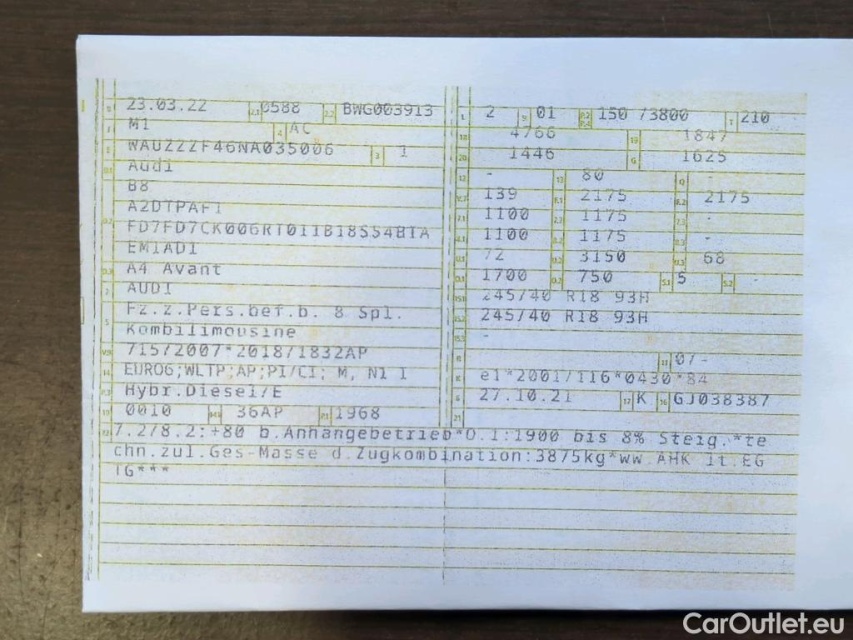 23.03.22 0588 BWG003913
M1 AC
WAUZZZF46NA035006 1
Audi
B8
A2DTPAF1
FD7FD7CK006RT011B18S54BTA
EM1AD1
A4 Avant
AUDI
Fz.z.Pers.bef.b. 8 Spl.
Kombilimousine
715/2007*2018/1832AP
EURO6;WLTP;AP;PI/CI; M, N1 I
Hybr.Diesel/E
0010 36AP 1968
2 01 150 /3800 210
4766 1847
1446 1625
- 80
139 2175 2175
1100 1175 -
1100 1175 -
72 3150 68
1700 750 5
245/40 R18 93H
245/40 R18 93H
-
07/-
e1*2001/116*0430*84
27.10.21 K GJ038387
7.2/8.2:+80 b.Anhängebetrieb*O.1:1900 bis 8% Steig.*te
chn.zul.Ges-Masse d.Zugkombination:3875kg*ww.AHK lt.EG
TG***
CarOutlet.eu